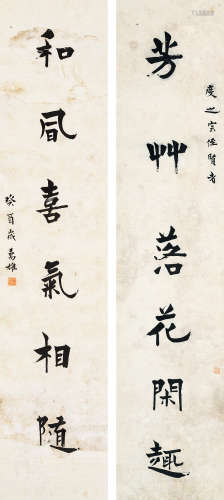 之宗侄賢者
芳艸落花閑趣
和風喜氣相隨
癸酉歲